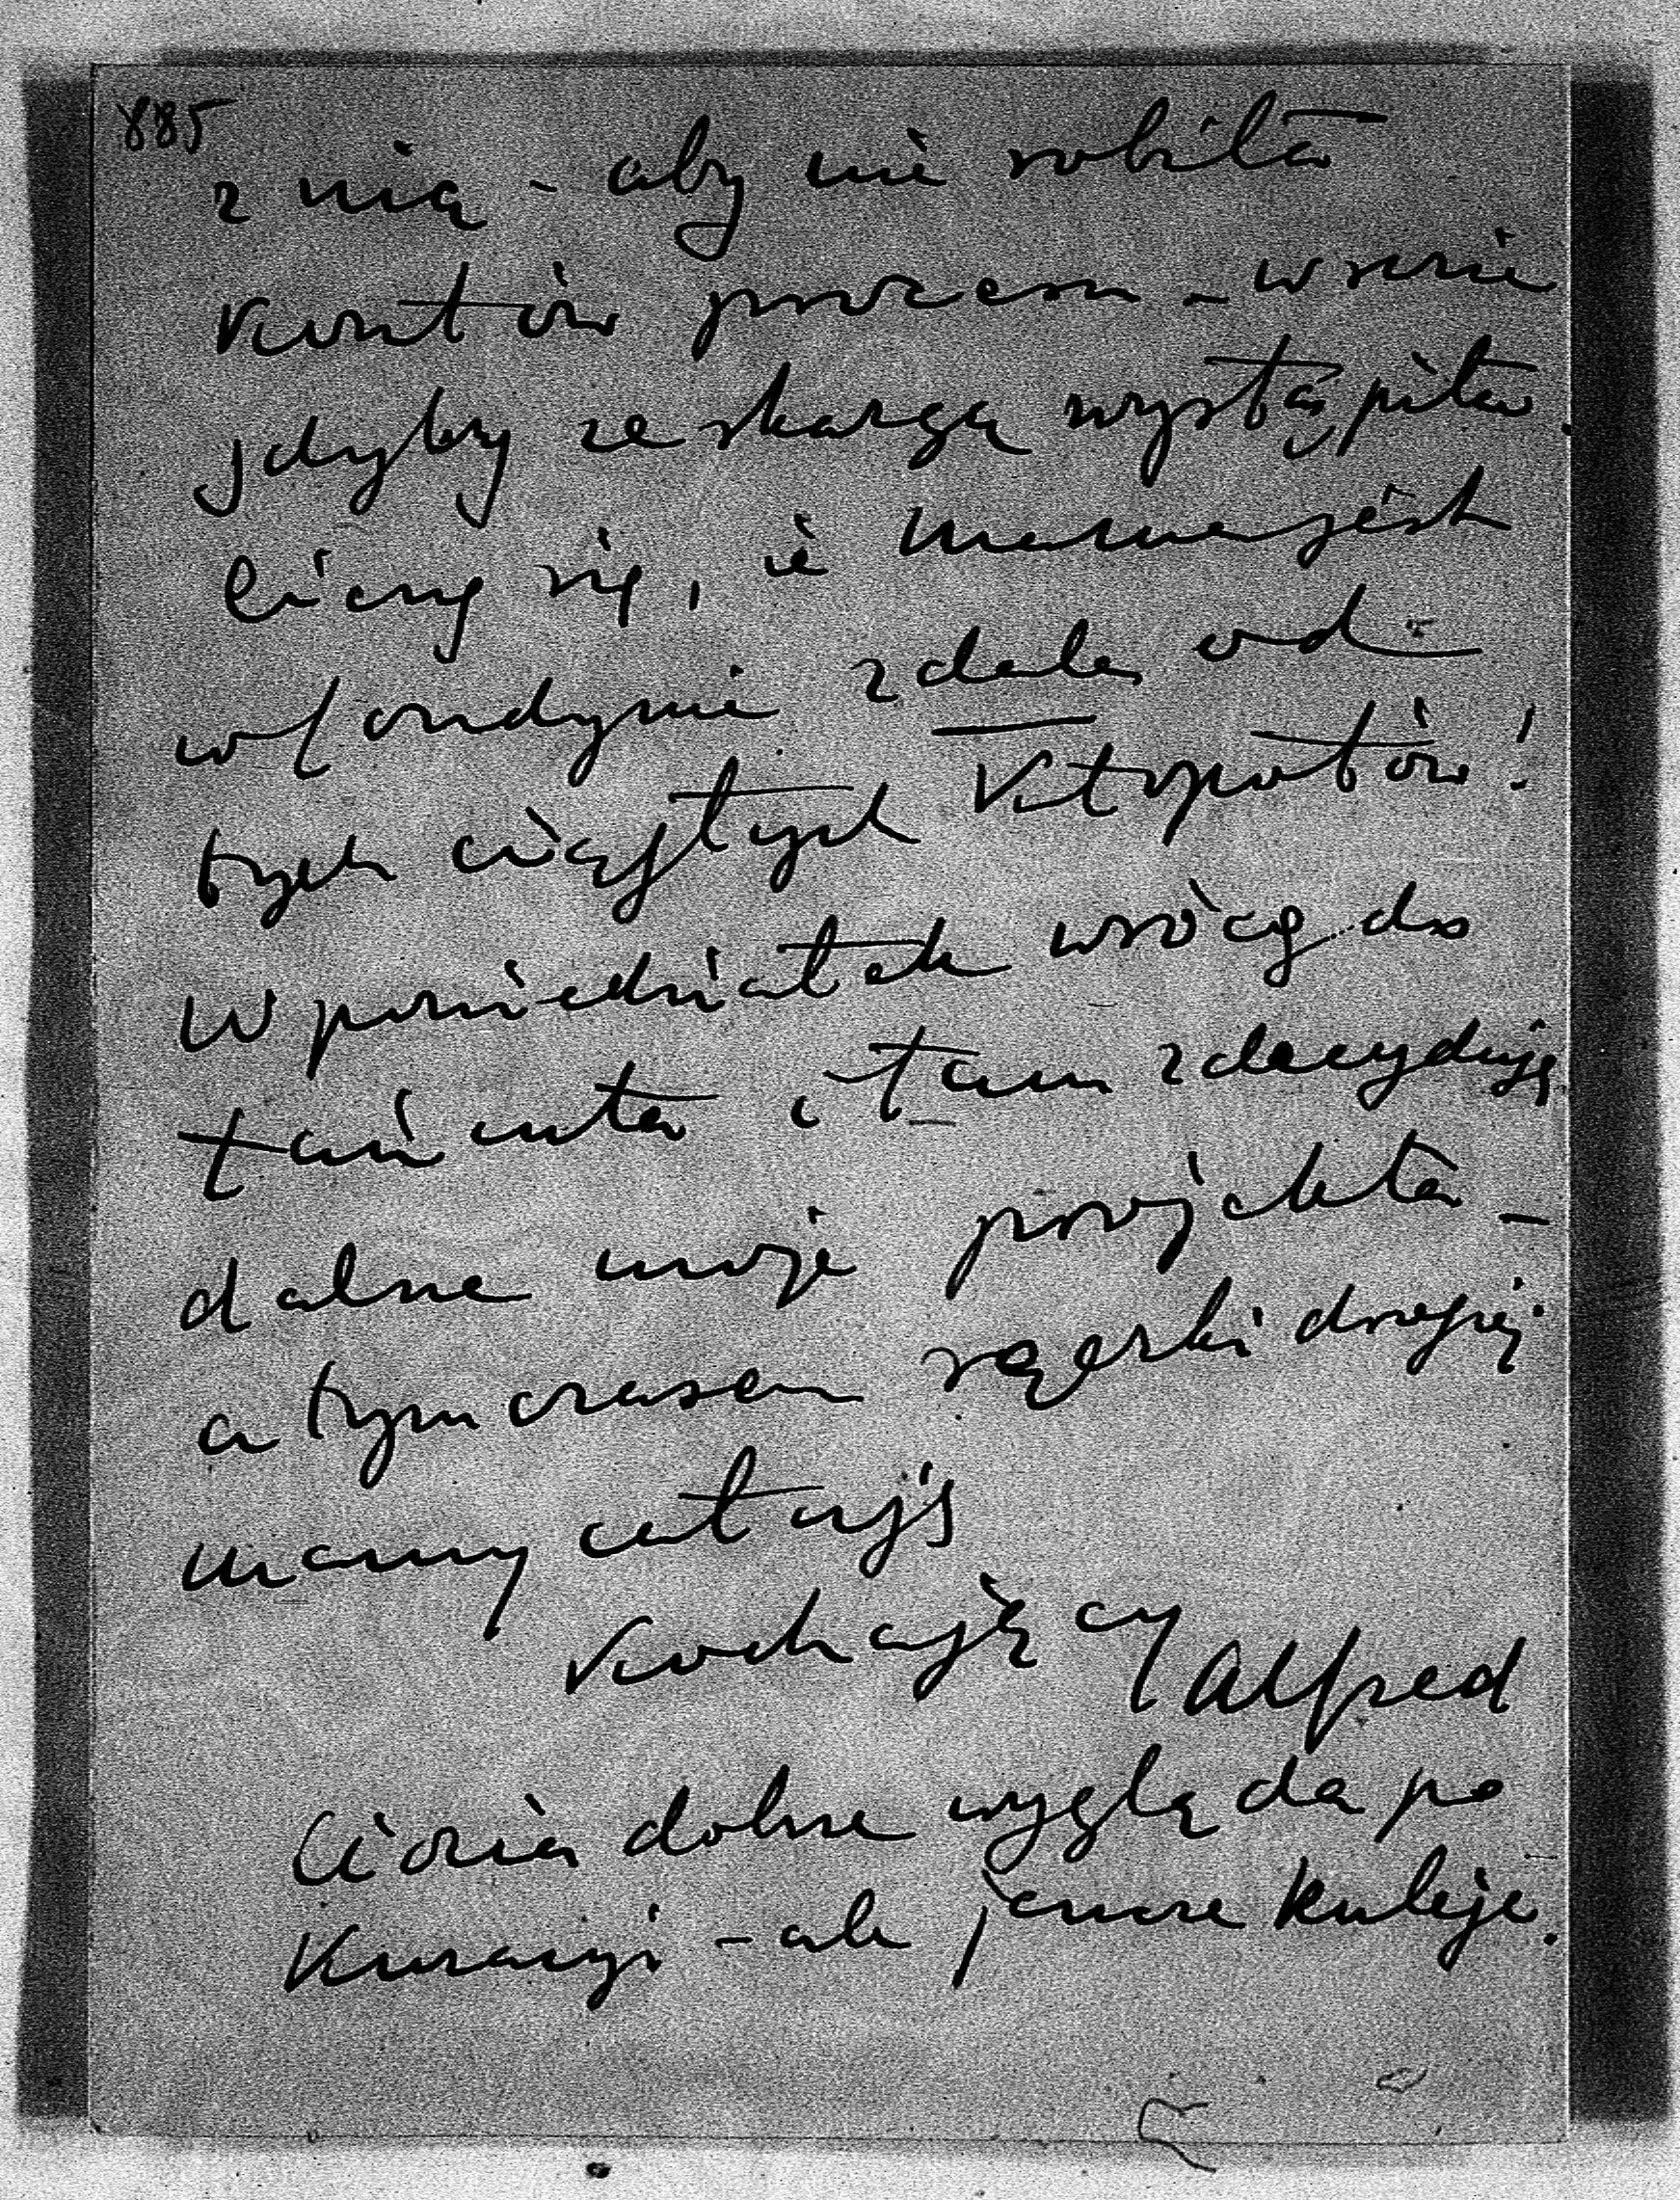 885
z nią - aby nie robiła
kosztów procesu - w razie
gdyby ze skargą wystąpiła.
Cieszę się, że Mama jest
w Londynie zdala od
tych ciągłych kłopotów!
W poniedziałek wrócę do
Łańcuta i tam zdecyduję
dalsze moje projekta -
a tymczasem rączki drogiej
mamy całuję
kochający Alfred
Ciocia dobrze wygląda po
Kuracyi - ale jeszcze kuleje.